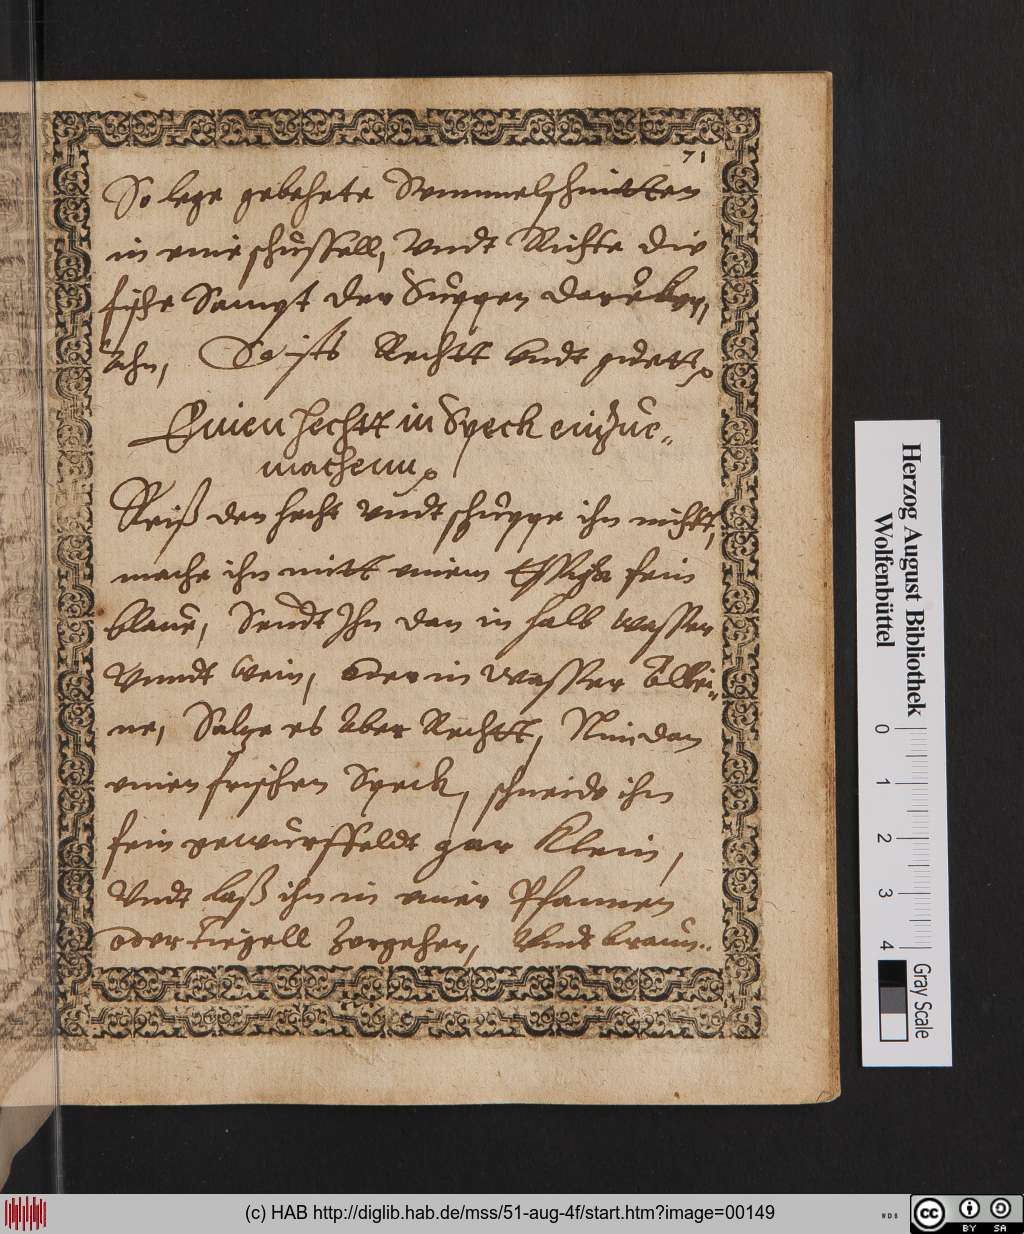 71
So lege gebehete Semmelschnitten
in eine schüssell, Vndt Richte die
fische Sampt der Suppen darüber,
ahn, So ists Recht vndt guett
Einen hechtt in Speck einzue„
machenn
Reiß den hecht Vndt schuppe ihn nicht,
mache ihn mitt einem Essigk fein
blaue, Seudt Ihn dan in halb wasser
Vnndt Wein, oder in wasser Allei„
ne, Saltze es Aber Rechtt, Nim dan
einen frischen Speck, schneide ihn
fein gewürffeldt gar Klein,
Vndt laß ihn in einer Pfannen
oder tiegell zergehen, Vndt braun„
Herzog August Bibliothek
Wolfenbüttel
0 1 2 3 4
Gray Scale
(c) HAB http://diglib.hab.de/mss/51-aug-4f/start.htm?image=00149
WDB
cc BY SA